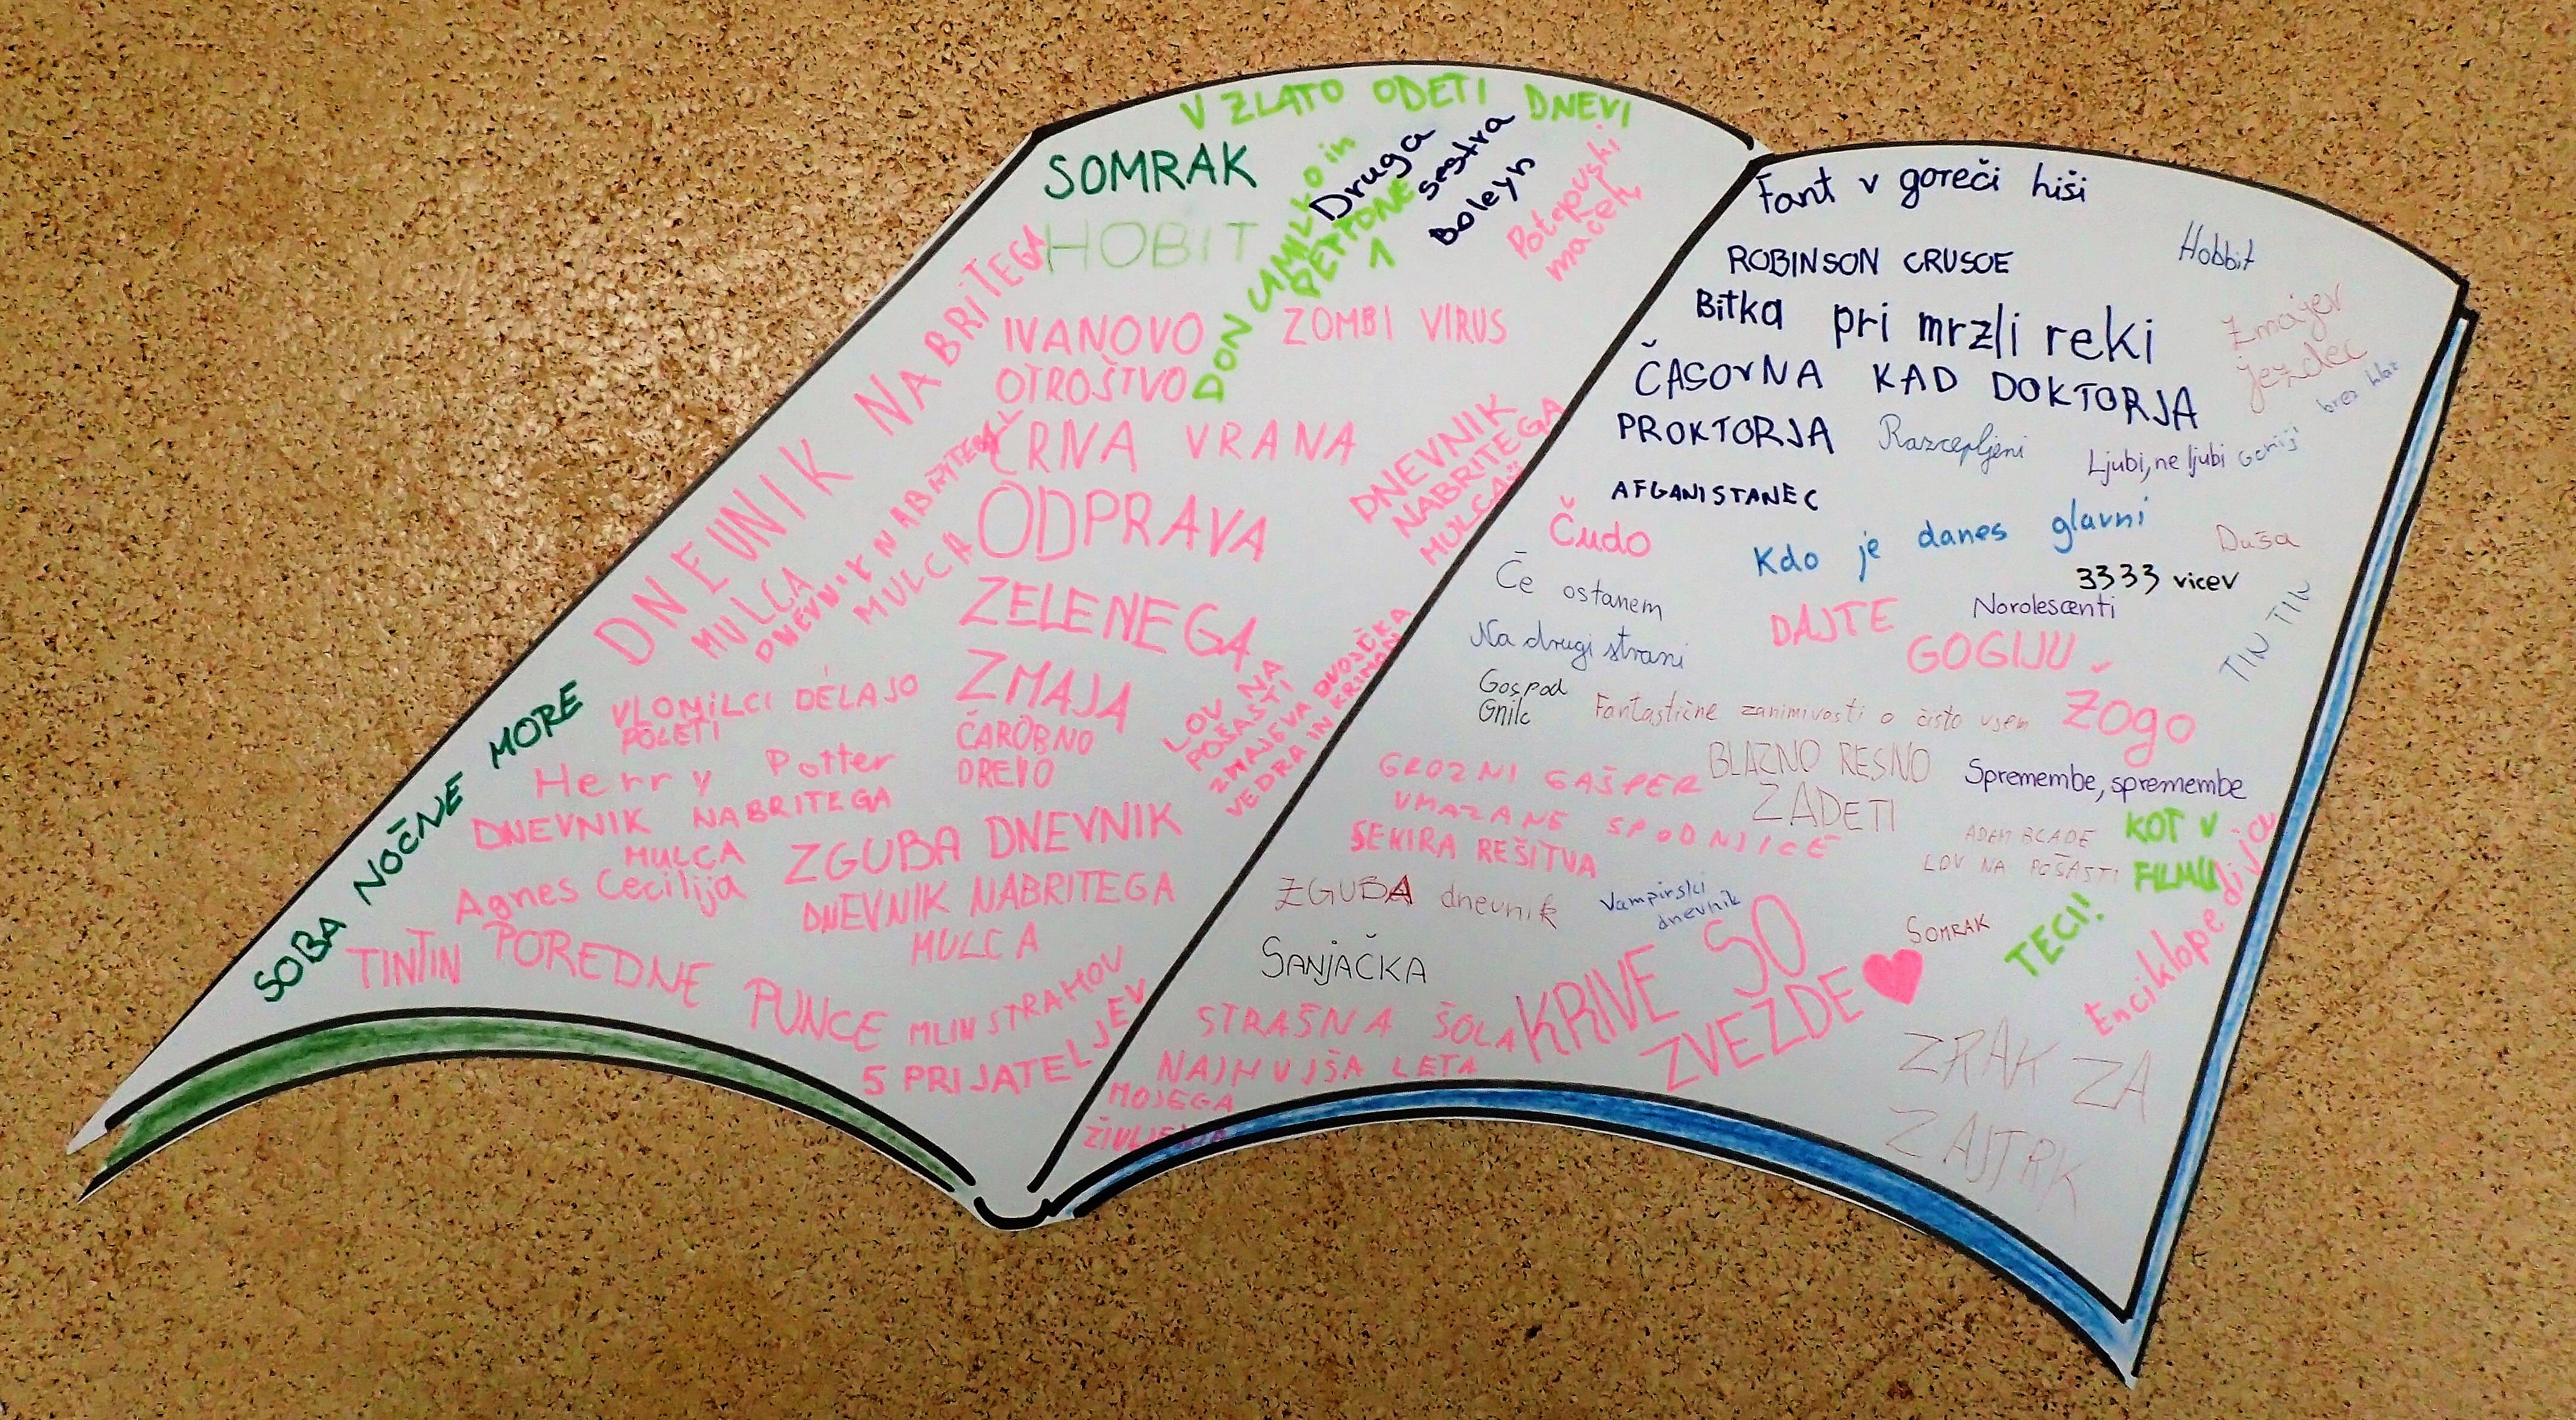 V ZLATO ODETI DNEVI
SOMRAK
HOBIT
DON CAMILLO in
PEPPONE
Druga
sestra
boleyn
Potepuški
maček
IVANOVO
OTROŠTVO
ZOMBI VIRUS
DNEVNIK NABRITEGA
MULCA
DNEVNIK NABRITEGA
MULCA
ČRNA VRANA
DNEVNIK
NABRITEGA
MULCA
ODPRAVA
ZELENEGA
ZMAJA
LOV NA
POŠASTI
ZMAJEVA DVOJČKA
VEDRA IN KRIMAN
VLOMILCI DELAJO
POLETI
ČAROBNO
DREVO
Herry Potter
DNEVNIK NABRITEGA
MULCA
ZGUBA DNEVNIK
Agnes Cecilija
DNEVNIK NABRITEGA
MULCA
SOBA NOČNE MORE
TINTIN
POREDNE PUNCE
MLIN STRAHOV
5 PRIJATELJEV
Fant v goreči hiši
Hobbit
ROBINSON CRUSOE
Bitka pri mrzli reki
Zmajev
jezdec
ČASOVNA KAD DOKTORJA
PROKTORJA
Razcepljeni
Ljubi, ne ljubi
bres hlač
AFGANISTANEC
Čudo
Kdo je danes glavni
Duša
3333 vicev
Če ostanem
Norolescenti
TIN TIN
Na drugi strani
DAJTE
GOGIJU
ŽOGO
Gospod
Gnilc
Fantastične zanimivosti o čisto vsem
GROZNI GAŠPER
UMAZANE SPODNJICE
BLAZNO RESNO
ZADETI
Spremembe, spremembe
SEKIRA REŠITVA
ADAM BLADE
LOV NA POŠASTI
KOT V
FILMU
ZGUBA dnevnik
Vampirski
dnevnik
SANJAČKA
KRIVE SO
ZVEZDE
SOMRAK
TECI!
Enciklopedija
STRAŠNA ŠOLA
NAJHUJŠA LETA
MOJEGA
ŽIVLJENJA
ZRAK ZA
ZAJTRK